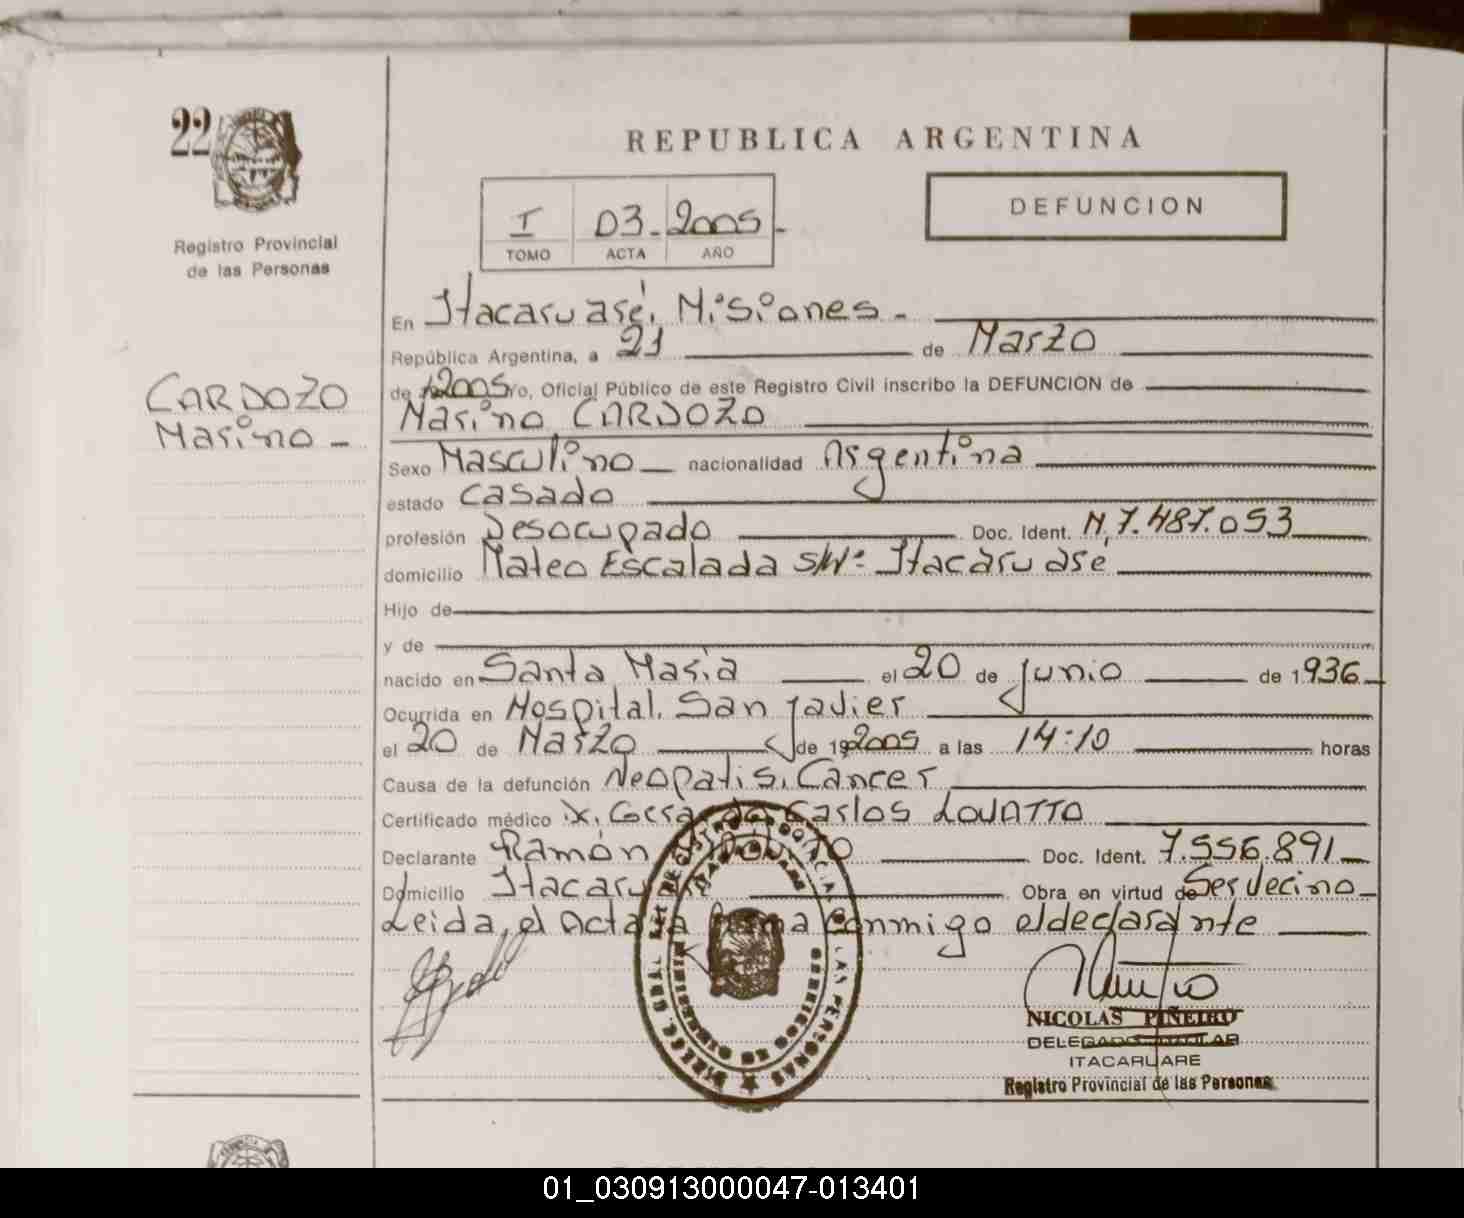 22
Registro Provincial
de las Personas
CARDOZO
Marino -
REPUBLICA ARGENTINA
I 03 - 2005 -
TOMO ACTA AÑO
DEFUNCION
En Itacaruaré, Misiones -
República Argentina, a 21 de Marzo
de 2005 yo, Oficial Público de este Registro Civil inscribo la DEFUNCION de
Marino CARDOZO
Sexo Masculino nacionalidad Argentina
estado Casado
profesión Desocupado Doc. Ident. M, 7.487.053
domicilio Mateo Escalada S/Nº Itacaruaré
Hijo de
y de
nacido en Santa Maria el 20 de junio de 1936
Ocurrida en Hospital. San javier
el 20 de Marzo de 19 2005 a las 14:10 horas
Causa de la defunción Neopatis, Cancer
Certificado médico Carlos LOVATTO
Declarante Ramón Doc. Ident. 7.556.891
Domicilio Itacaruaré Obra en virtud de Ser Vecino
Leida, el Acta la firma conmigo el declarante
NICOLAS PIÑEIRO
DELEGADO TITULAR
ITACARUARE
Registro Provincial de las Personas
01_030913000047-013401